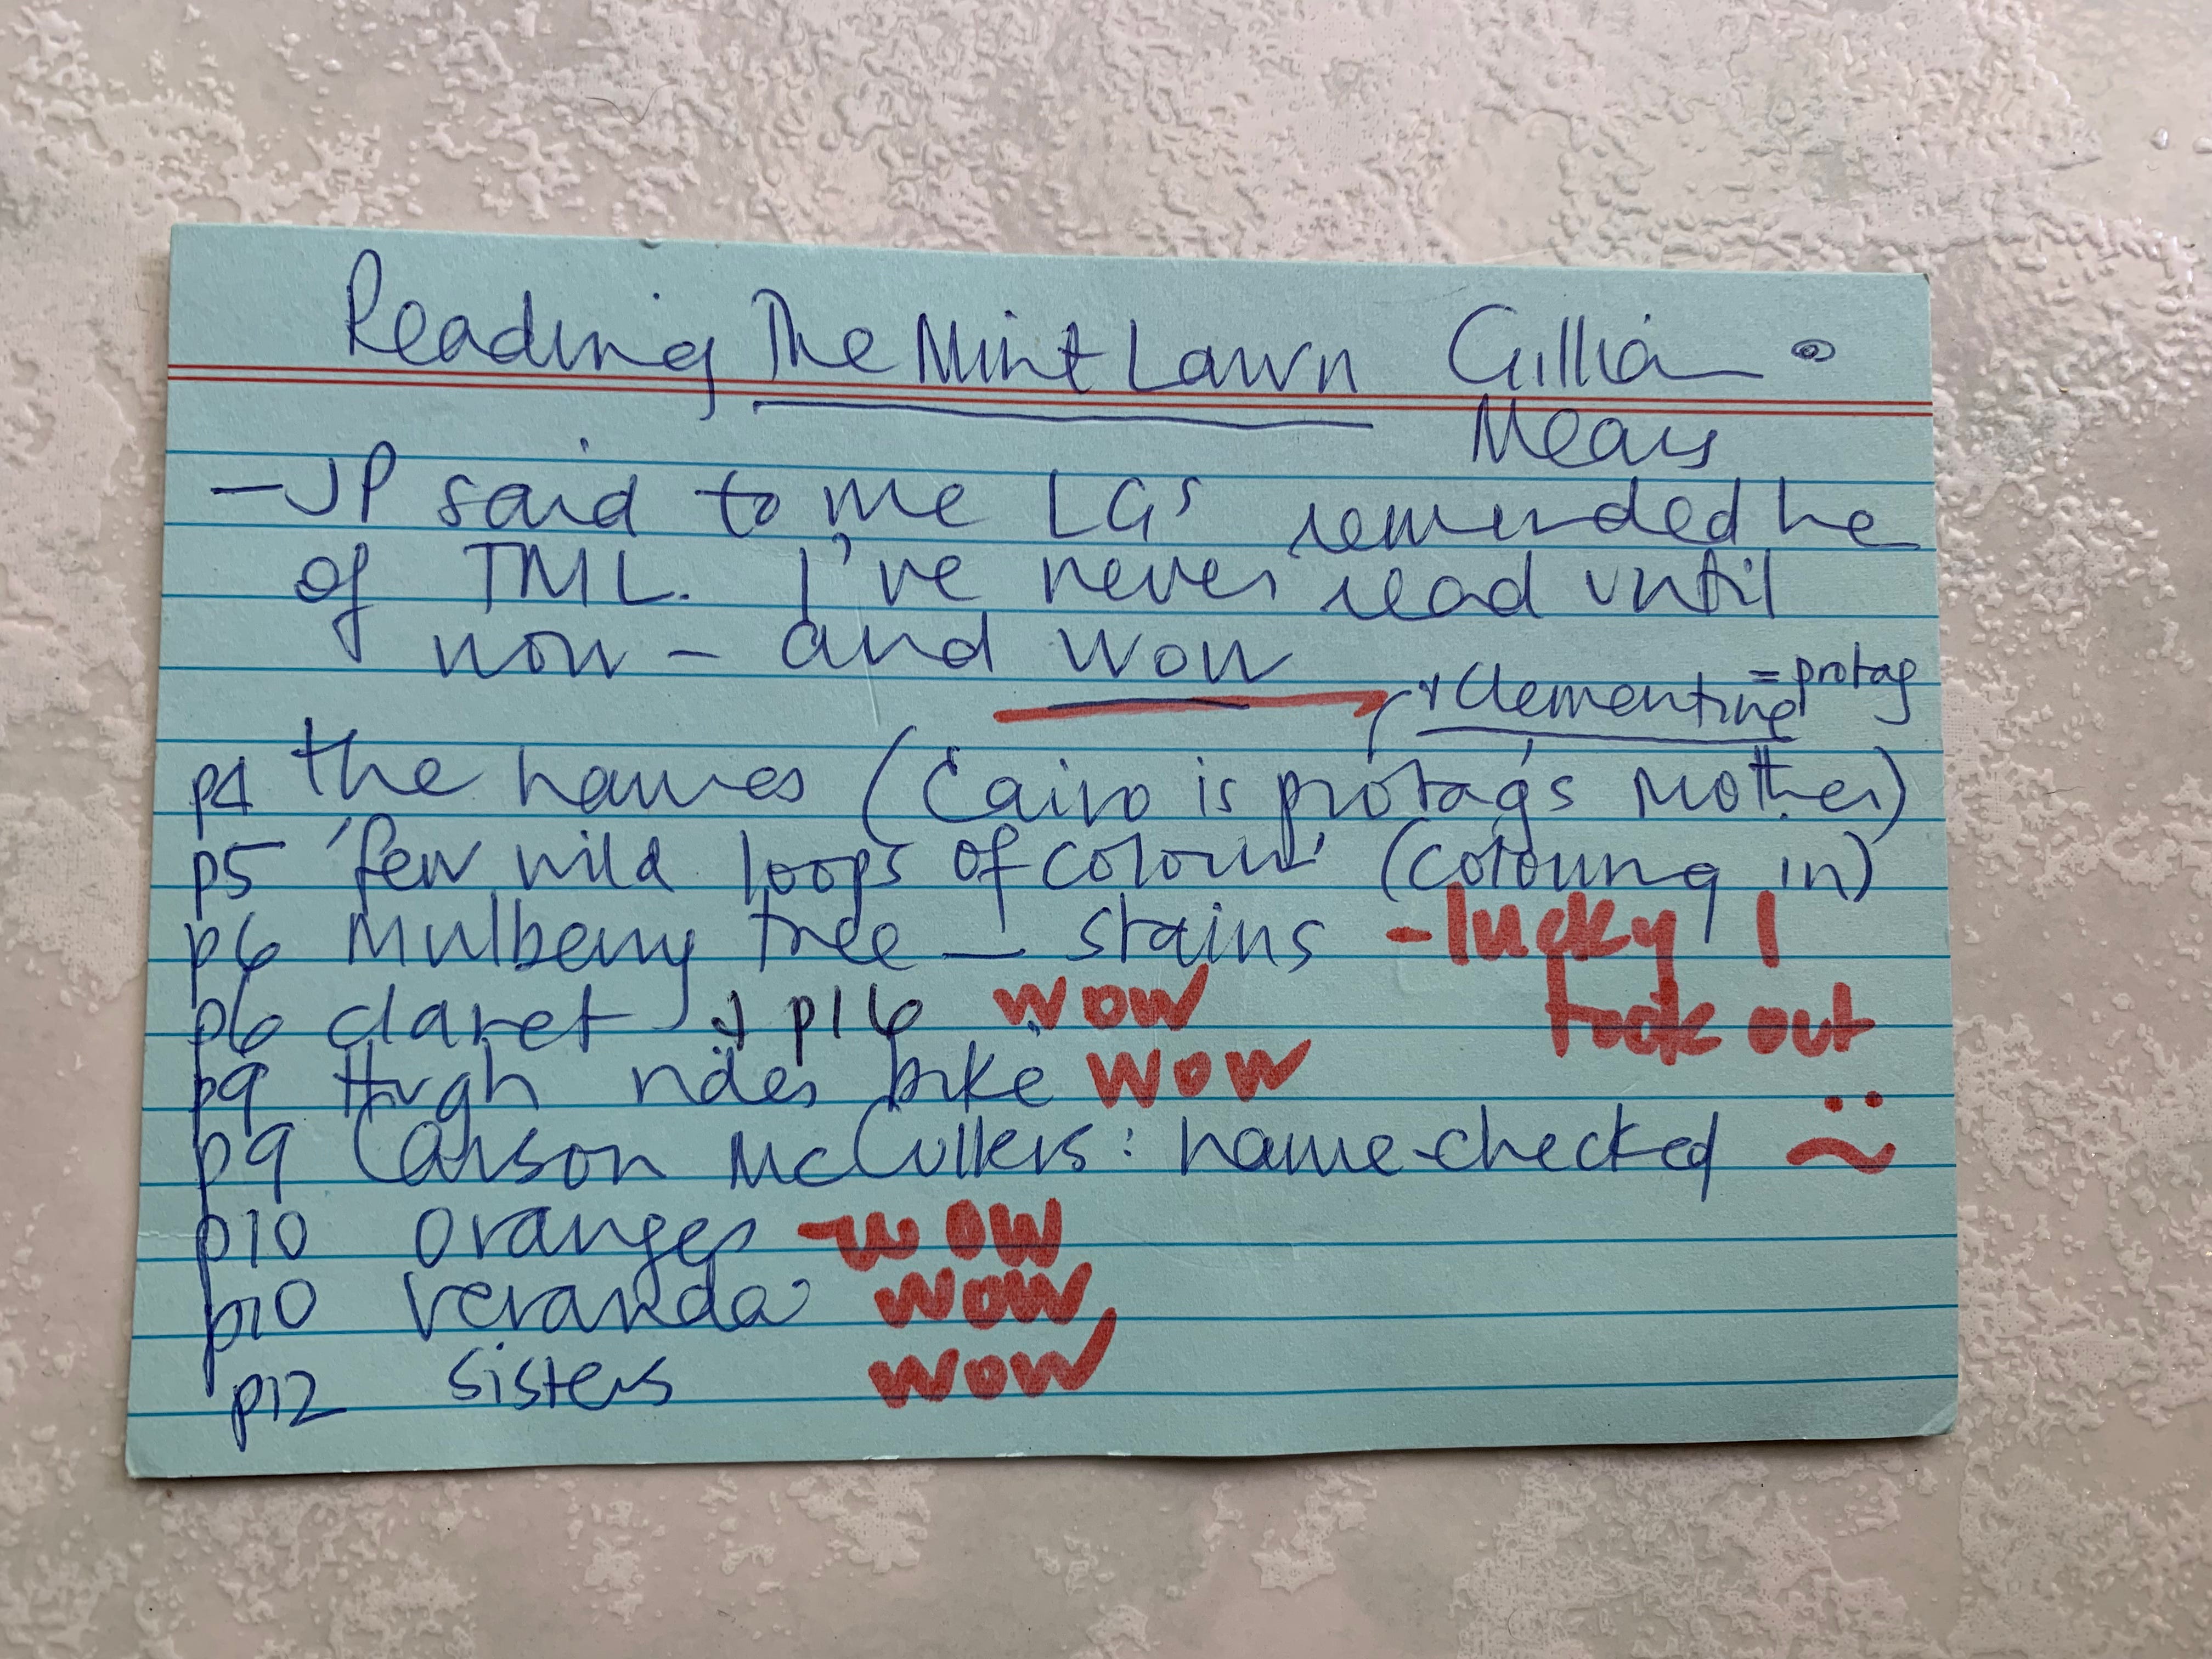 Reading The Mint Lawn Gillian
Mears
- JP said to me LGS reminded he
of TML. I've never read until
now - and wow
+ Clementine = protag
p4 the names (Cairo is protag's mother)
p5 'few wild loops of colour' (colouring in)
p6 Mulberry tree - stains - lucky I
took out
p6 claret + p16 wow
p9 Hugh rides bike wow
p9 Carson McCullers: name-checked
p10 oranges - wow
p10 veranda wow
p12 sisters wow